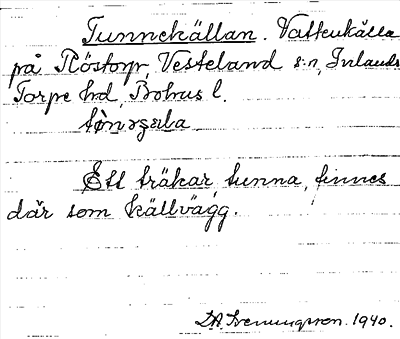 Tunnekällan. Vattenkälla
på Röstorp, Vesteland s:n, Inlands
Torpe hd, Bohus l.
Ett träkar, tunna, finnes
där som källvägg.
1940.